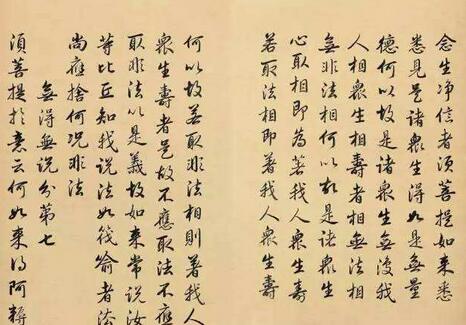 念生净信者須菩提如来悉
悉見是諸衆生得如是無量
德何以故是諸衆生無復我
人相衆生相壽者相無法相
無非法相何以故是諸衆生
心取相即為著我人衆生壽
若取法相即著我人衆生壽
何以故若取非法相則著我人
衆生壽者是故不應取法不應
取非法以是義故如来常說汝
等比丘知我說法如筏喻者法
尚應捨何况非法
無得無說分第七
須菩提於意云何如来得阿耨